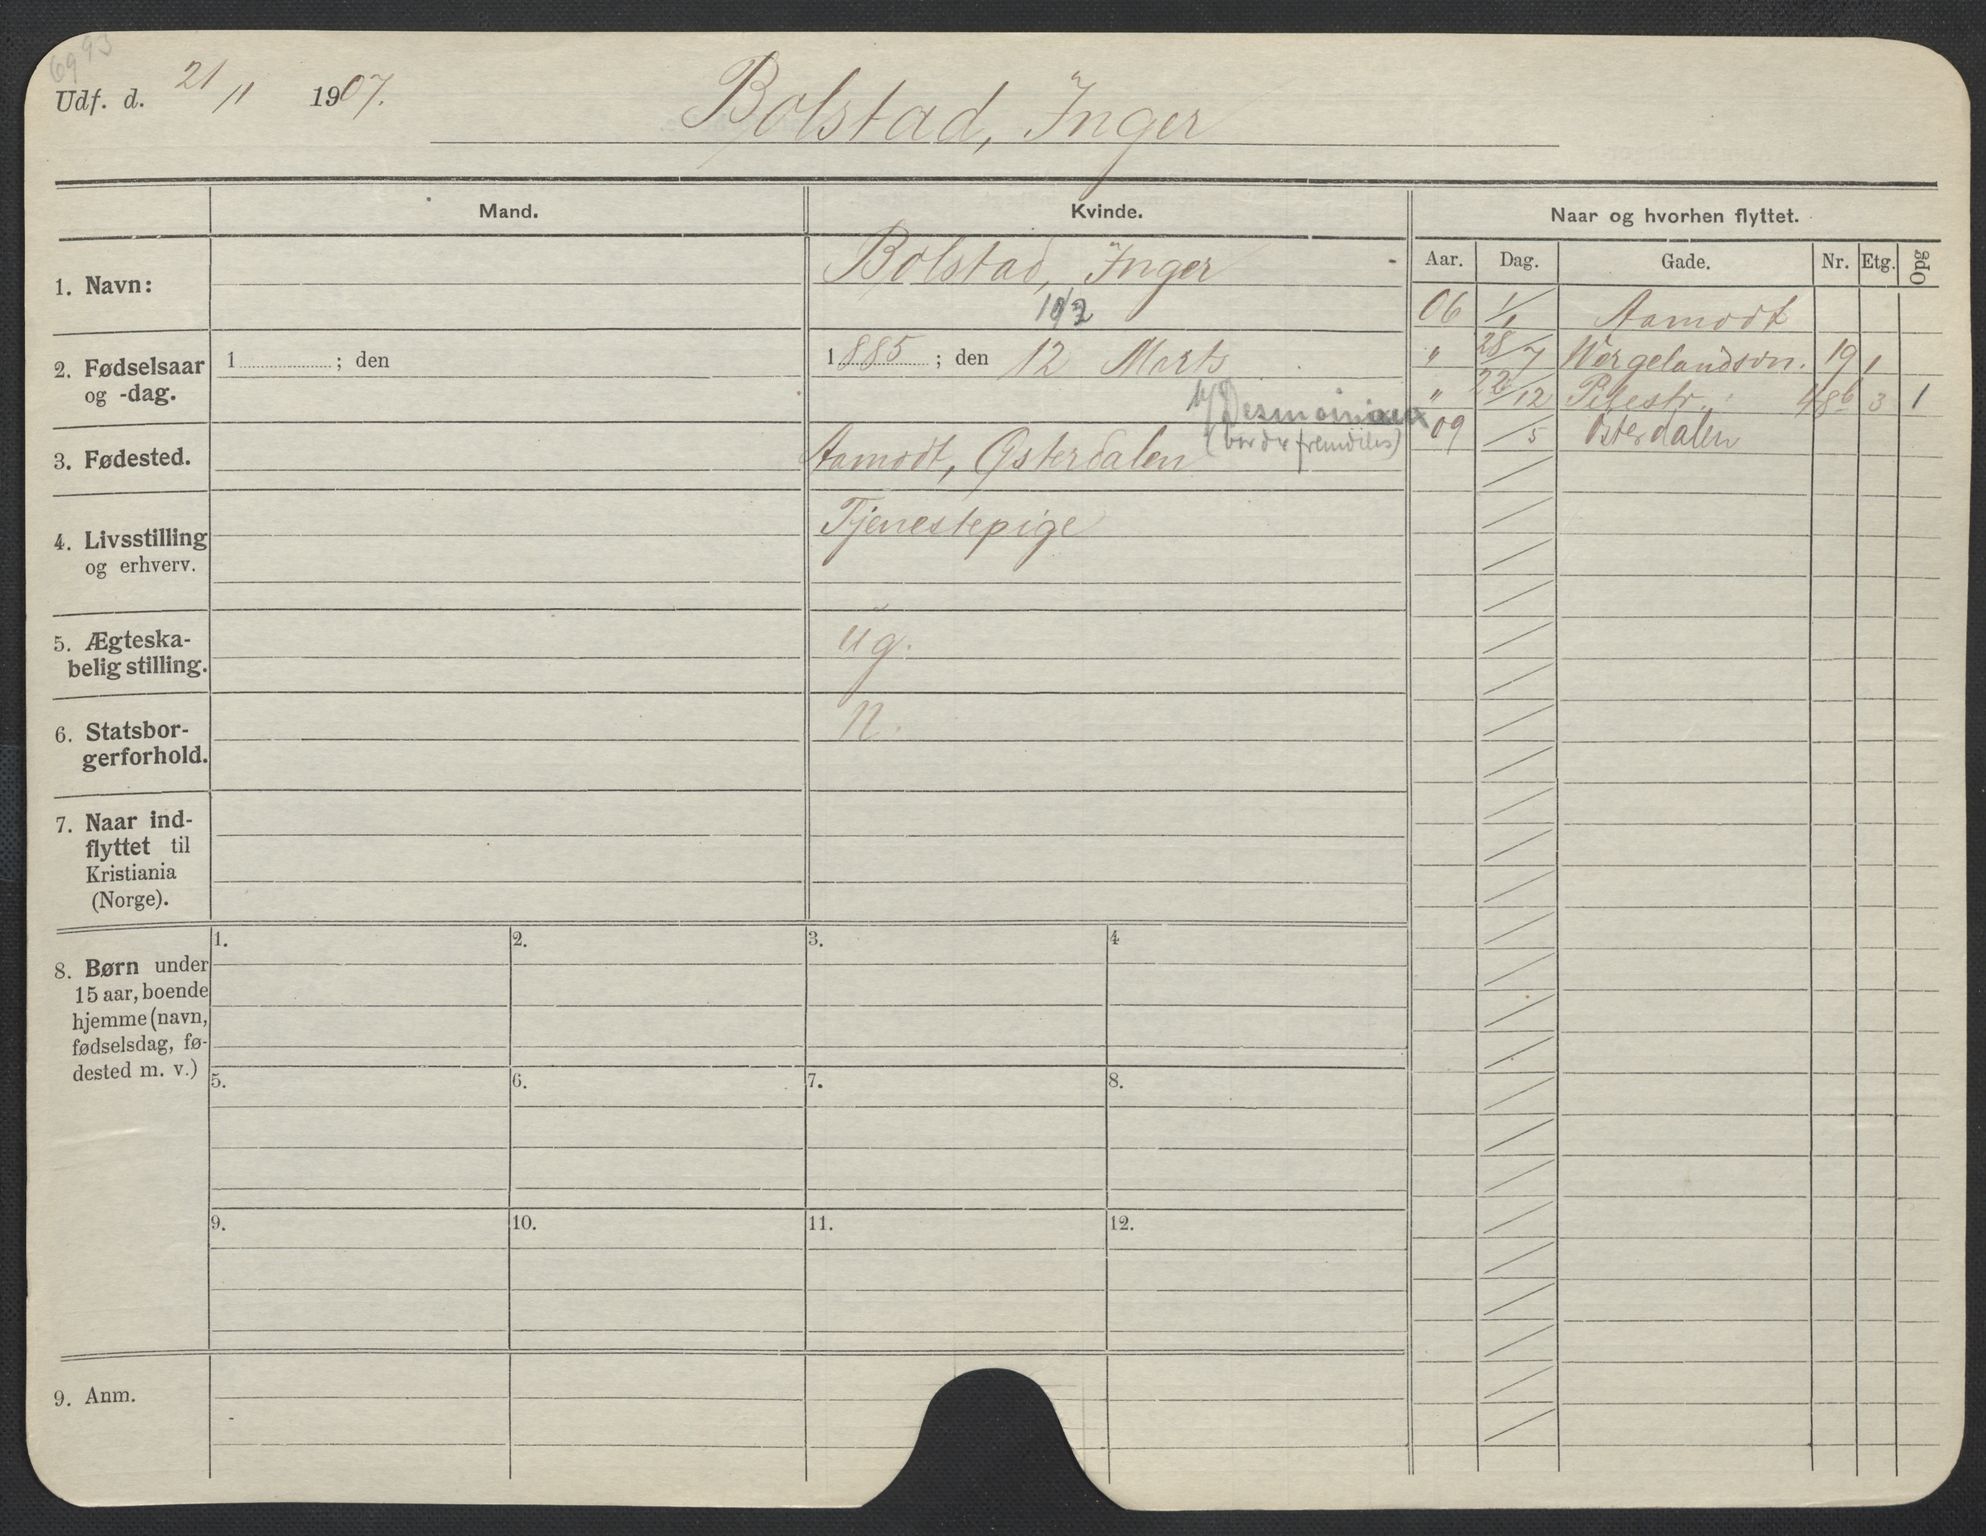 6993
Udf. d. 21/11 1907.
Bolstad, Inger
Mand.
Kvinde.
Naar og hvorhen flyttet.
Aar. Dag. Gade. Nr. Etg. Opg
1. Navn:
Bolstad, Inger
06 1/1 Aamodt
2. Fødselsaar
og -dag.
1 ; den
1885 ; den 12 Marts
" 28/7 Wergelandsvn. 19 1
" 22/12 Pilestr. 48b 3 1
09 /5 Østerdalen
3. Fødested.
Aamodt, Østerdalen
4. Livsstilling
og erhverv.
Tjenestepige
5. Ægteska-
belig stilling.
ug.
6. Statsbor-
gerforhold.
N.
7. Naar ind-
flyttet til
Kristiania
(Norge).
8. Børn under
15 aar, boende
hjemme (navn,
fødselsdag, fø-
dested m. v.)
1. 2. 3. 4
5. 6. 7. 8.
9. 10. 11. 12.
9. Anm.